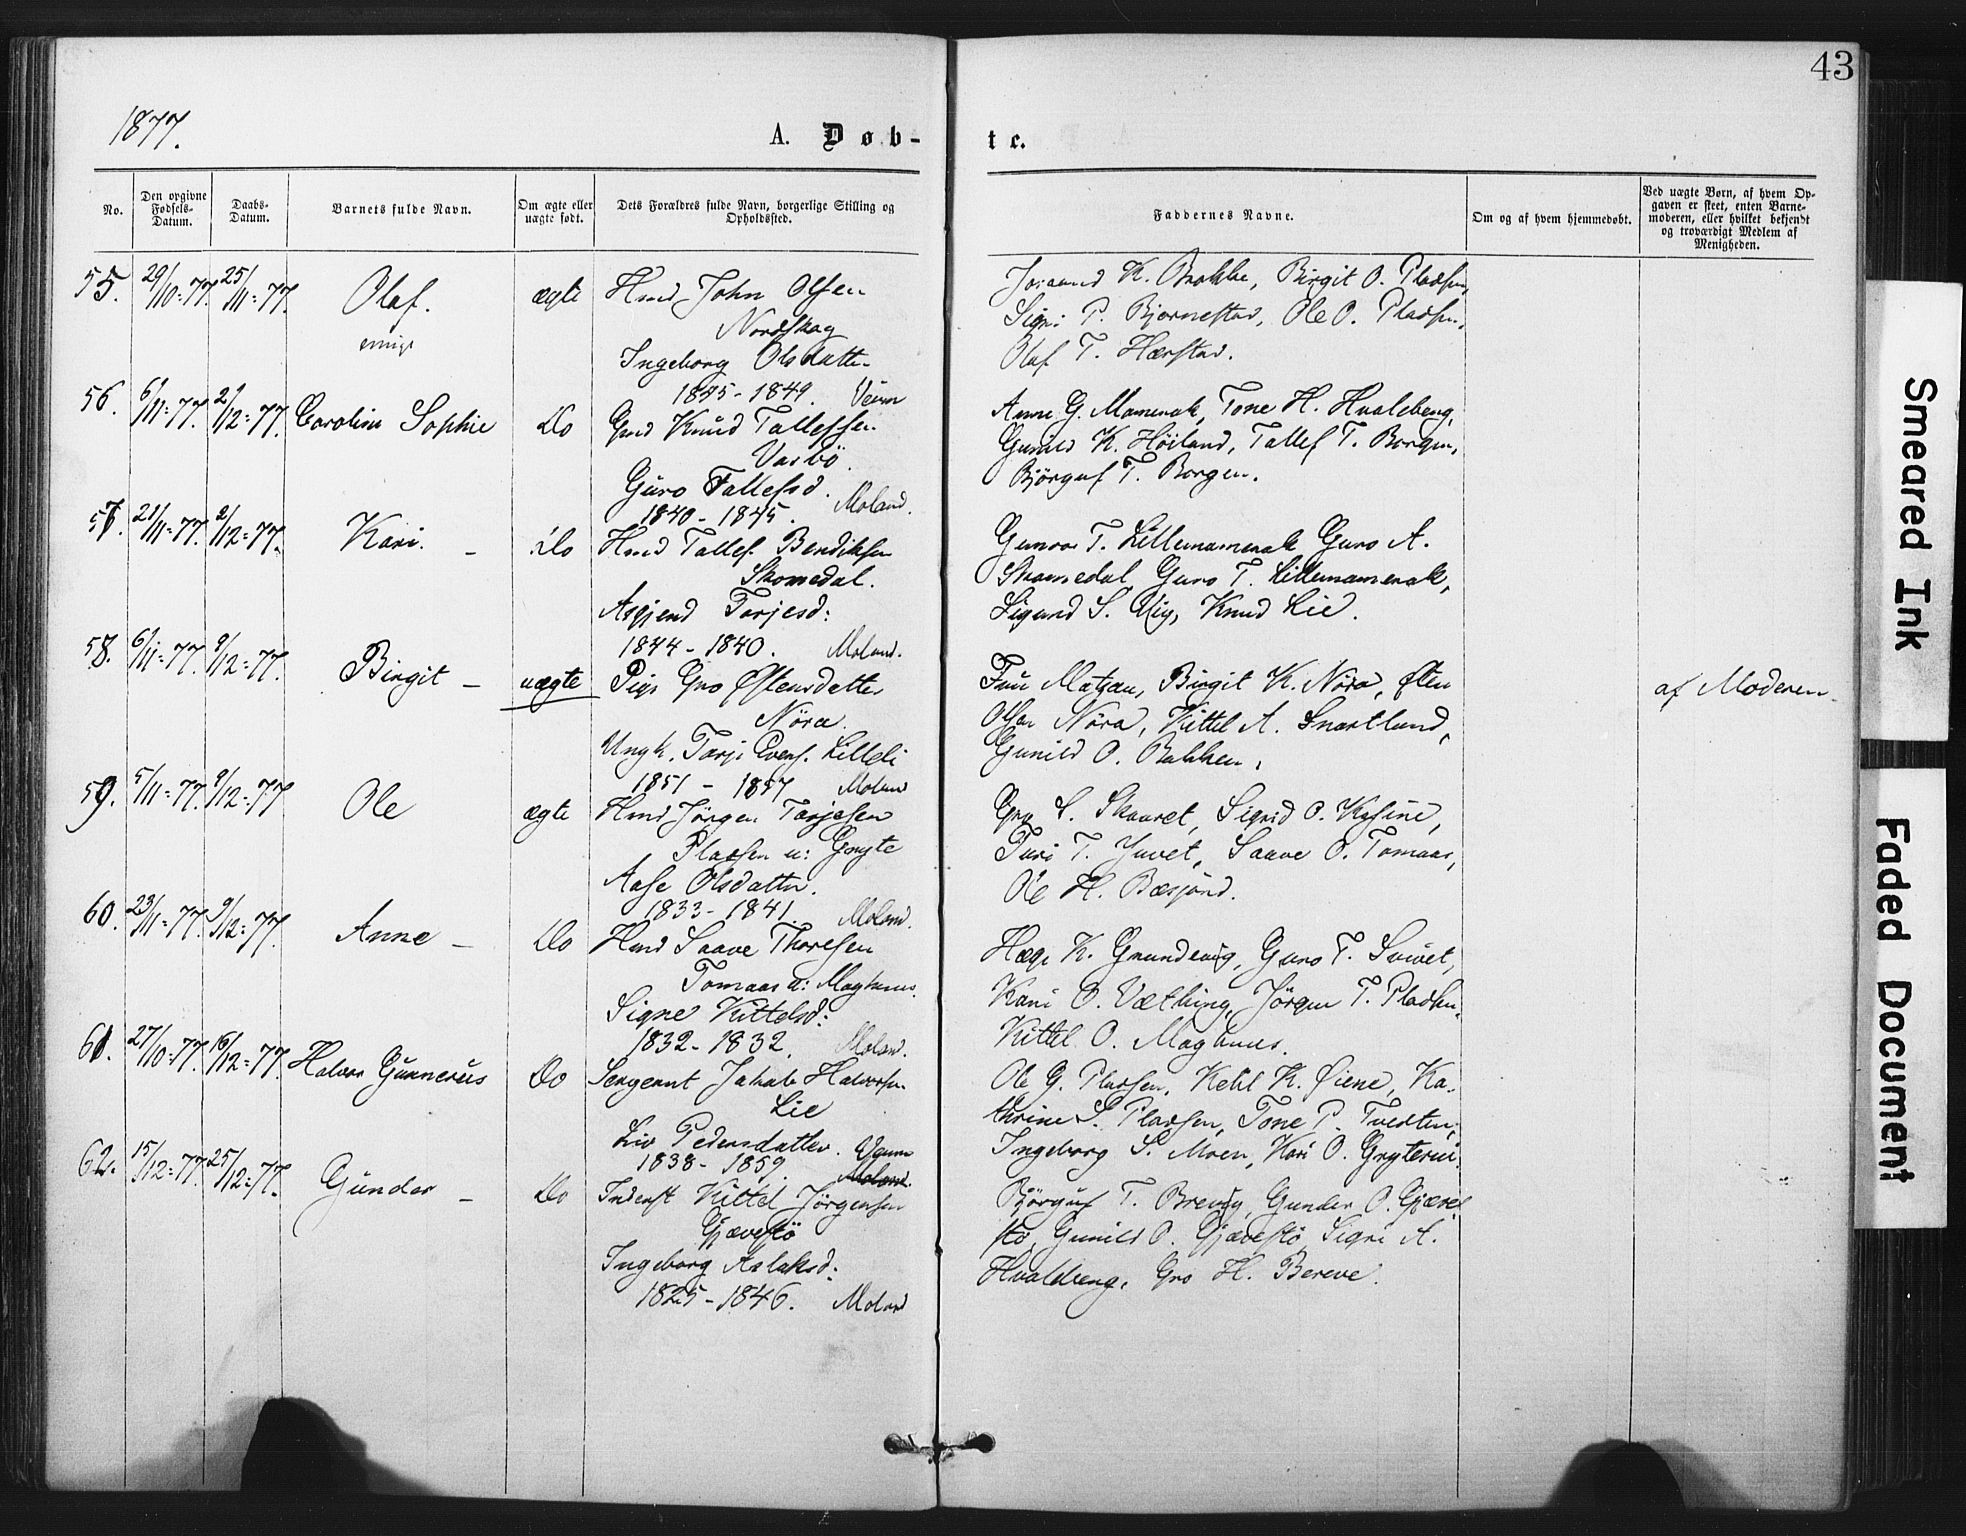 43
1877.
A. Døb-
te.
No.
Den opgivne Fødsels-Datum.
Daabs-Datum.
Barnets fulde Navn.
Om ægte eller uægte født.
Dets Forældres fulde Navn, borgerlige Stilling og Opholdssted.
Faddernes Navne.
Om og af hvem hjemmedøbt.
Ved uægte Børn, af hvem Opgaven er skeet, enten Barnemoderen, eller hvilket bekjendt og troværdigt Medlem af Menigheden.
55. 29/10=77. 25/11=77. Olaf. ægte Hmd John Olsen
Nordskag
Ingeborg Olsdatter
1845-1849. Veum
K. Brokke, Birgit O. Pladsen,
Sigri P. Bjørnestad, Ole O. Pladsen,
Olaf T. Hærstad.
56. 6/11=77. 2/12=77. Caroline Sophie Do Gmd Knud Tallefsen
Vasbö.
Guro Tallefsd.
1840-1845. Moland.
Anne G. Momerak, Tone H. Hvaleberg,
Gunild K. Høiland, Tallef T. Borgen,
Björguf T. Borgen.
57. 21/11=77. 2/12=77. Kari. - Do Hmd Tallef Bendiksen
Skomedal.
Asgjerd Torjesd:
1844-1840. Moland.
T. Lillemomerak Guro A.
Skomedal, Guro T. Lillemomerak,
Sigurd S. Knud Lie.
58. 6/11=77. 9/12=77. Birgit - uægte Pige Gro Østensdatter
Nöra.
Ungk. Torje Evens. Lilleli
1851 - 1857 Moland
Fru Matzau, Birgit K. Nöra, Østen
Olsen Nöra, Kittel A. Snartland,
Gunild O. Bakken.
af Moderen.
59. 5/11=77. 9/12=77 Ole ægte Hmd Jörgen Torjesen
Pladsen u: Gryte
Aase Olsdatter.
1833-1841. Moland.
Gro S. Skaaret, Sigrid O.
Turi T. Juvet, Saave O. Tomaas,
Ole H.
60. 23/11=77. 9/12=77. Anne - Do Hmd Saave Thoresen
Tomaas u: Moghuus.
Signe Kittelsd:
1832-1832. Moland.
Hæge K. Grundevig, Guro T.
Kari O. Væthing, Jörgen T. Pladsen,
Kittel O. Moghuus.
61. 27/10=77. 16/12=77. Halvor Gunnerius Do Sergeant Jakob Halvorsen
Lie
Liv Pedersdatter. Veum
1838-1859. Moland.
Ole G. Pladsen, Ketil K. Øiene, Ka-
thrine S. Pladsen, Tone P. Tvedten,
Ingeborg S. Moen, Kari O.
62. 15/12=77. 25/12=77. Gunder - Do Inderst Kittel Jörgensen
Gjævestö
Ingeborg Aslaksd:
1825-1846. Moland
Björguf T. Brevig, Gunder O. Gjæve-
stö, Gunild O. Gjævestö, Sigri A.
Hvaleberg, Gro H. Bereve.
Smeared Ink
Faded Document